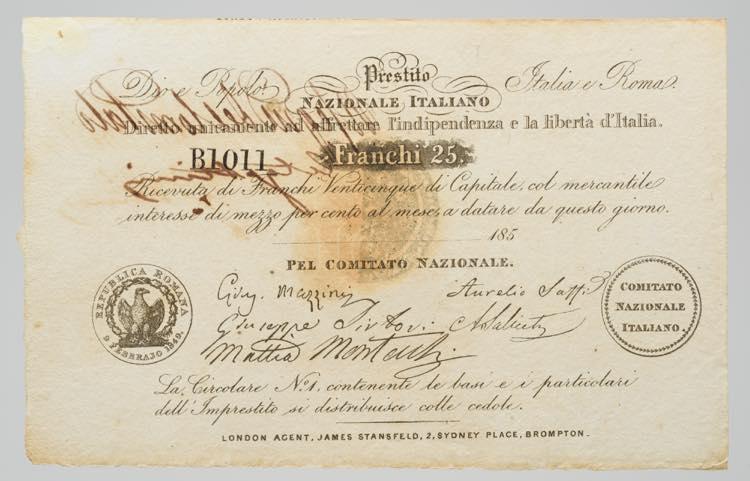 Dio e Popolo. Prestito Italia e Roma.
NAZIONALE ITALIANO
Diretto unicamente ad affrettare l'indipendenza e la libertà d'Italia.
B1011 Franchi 25.
Ricevuta di Franchi Venticinque di Capitale, col mercantile
interesse di mezzo per cento al mese, a datare da questo giorno.
185
PEL COMITATO NAZIONALE.
REPUBLICA ROMANA
9 FEBBRAJO 1849.
Gius. Mazzini
Aurelio Saffi
Giuseppe Sirtori
A Saliceti
Mattia Montecchi
COMITATO
NAZIONALE
ITALIANO.
La Circolare No. 1. contenente le basi e i particolari
dell'Imprestito si distribuisce colle cedole.
LONDON AGENT, JAMES STANSFELD, 2, SYDNEY PLACE, BROMPTON.